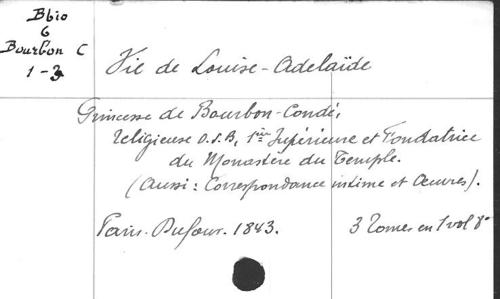 Bbio
6
Bourbon C
1-3
Vie de Louise-Adelaïde
Princesse de Bourbon-Condé,
religieuse O.S.B, 1ère Supérieure et Fondatrice
du Monastère du Temple.
(aussi: Correspondance intime et Œuvres).
Paris. Dufour. 1843. 3 Tomes en 1 vol 8°